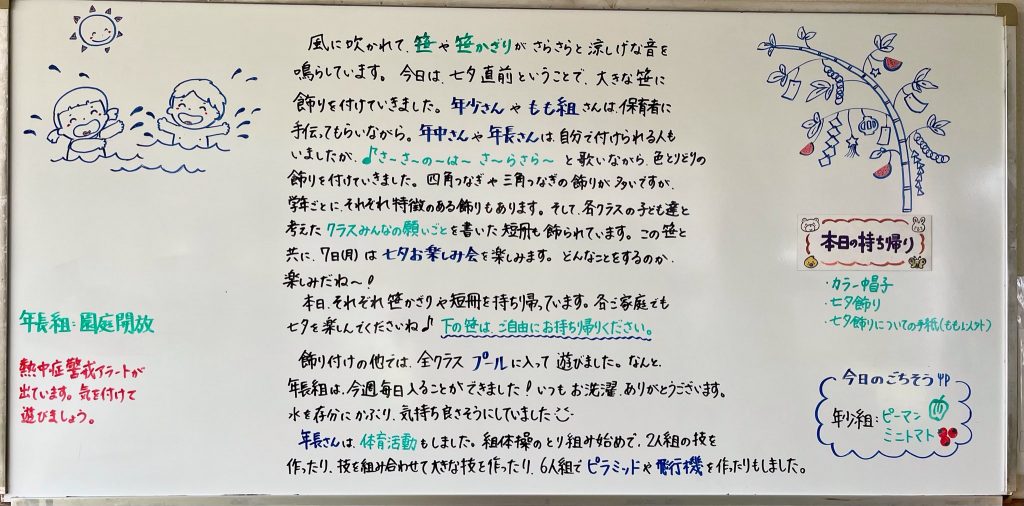 風に吹かれて、笹や笹かざりがさらさらと涼しげな音を
鳴らしています。今日は、七夕直前ということで、大きな笹に
飾りを付けていきました。年少さんやもも組さんは、保育者に
手伝ってもらいながら。年中さんや年長さんは、自分で付けられる人も
いましたが、♪さ〜さ〜の〜は〜 さ〜らさら〜 と歌いながら、色とりどりの
飾りを付けていきました。四角つなぎや三角つなぎの飾りが多いですが、
学年ごとに、それぞれ特徴のある飾りもあります。そして、各クラスの子ども達と
考えたクラスみんなの願いごとを書いた短冊も飾られています。この笹と
共に、7日(月)は七夕お楽しみ会を楽しみます。どんなことをするのか、
楽しみだね〜!
本日、それぞれ笹かざりや短冊を持ち帰っています。各ご家庭でも
七夕を楽しんでくださいね♪ 下の笹は、ご自由にお持ち帰りください。
飾り付けの他では、全クラスプールに入って遊びました。なんと、
年長組は、今週毎日入ることができました!いつもお洗濯、ありがとうございます。
水を存分にかぶり、気持ち良さそうにしていました
年長さんは、体育活動もしました。組体操のとり組み始めで、2人組の技を
作ったり、技を組み合わせて大きな技を作ったり、6人組でピラミッドや飛行機を作ったりもしました。
年長組:園庭開放
熱中症警戒アラートが
出ています。気を付けて
遊びましょう。
本日の持ち帰り
・カラー帽子
・七夕飾り
・七夕飾りについての手紙(もも以外)
今日のごちそう
年少組:ピーマン
ミニトマト